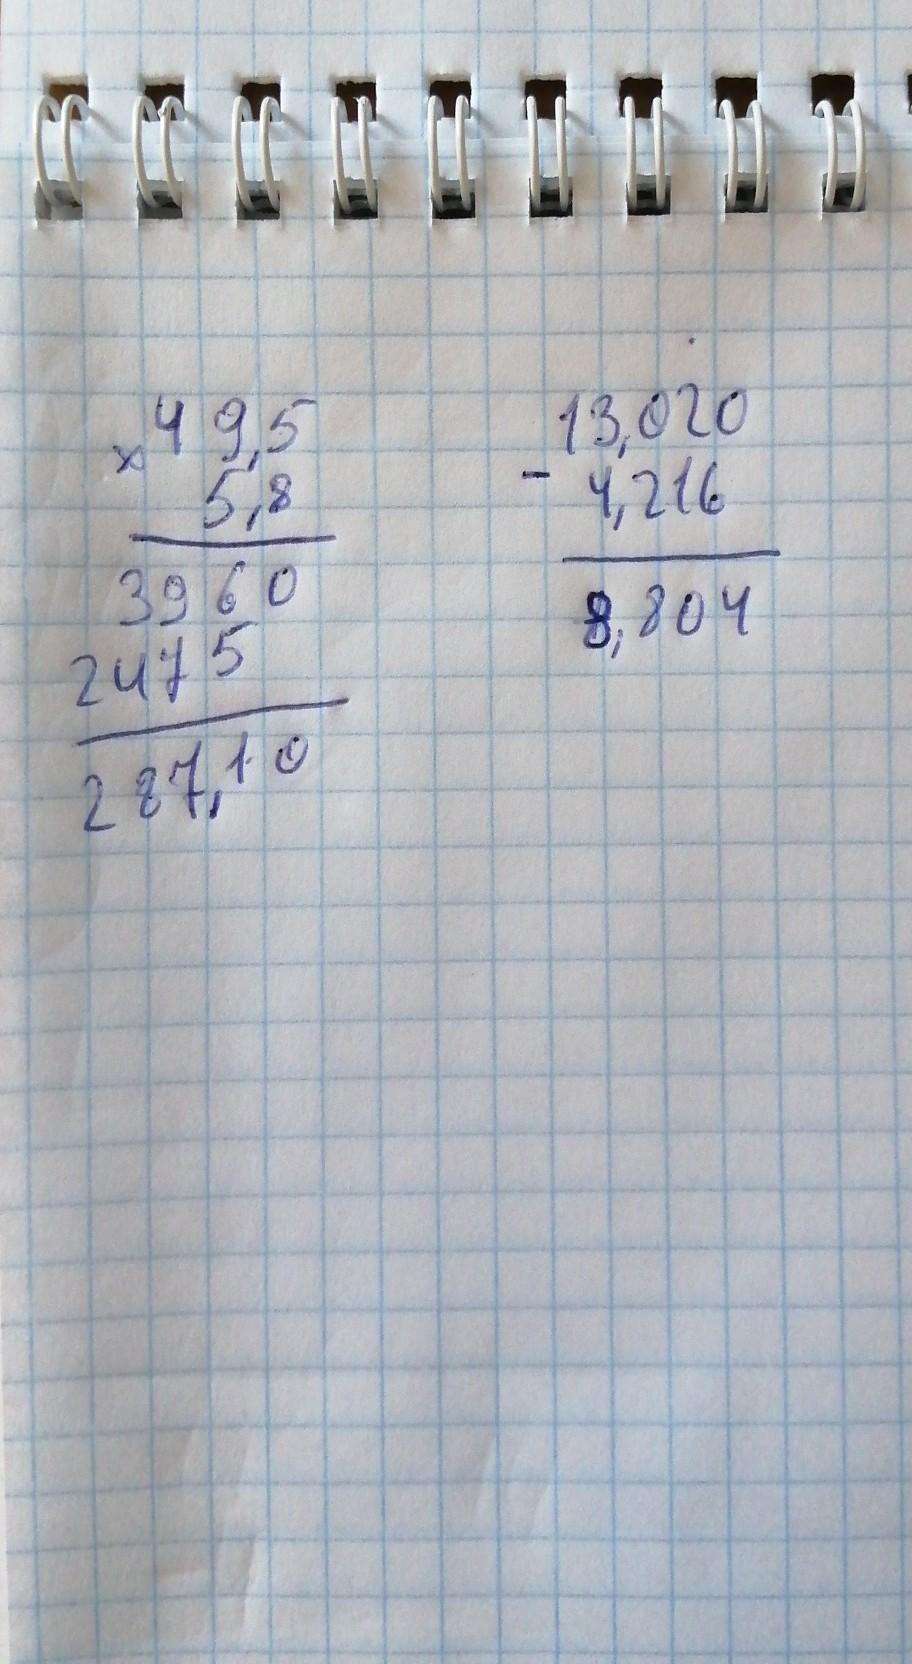 × 49,5
5,8
3960
2475
287,10
13,020
- 4,216
8,804